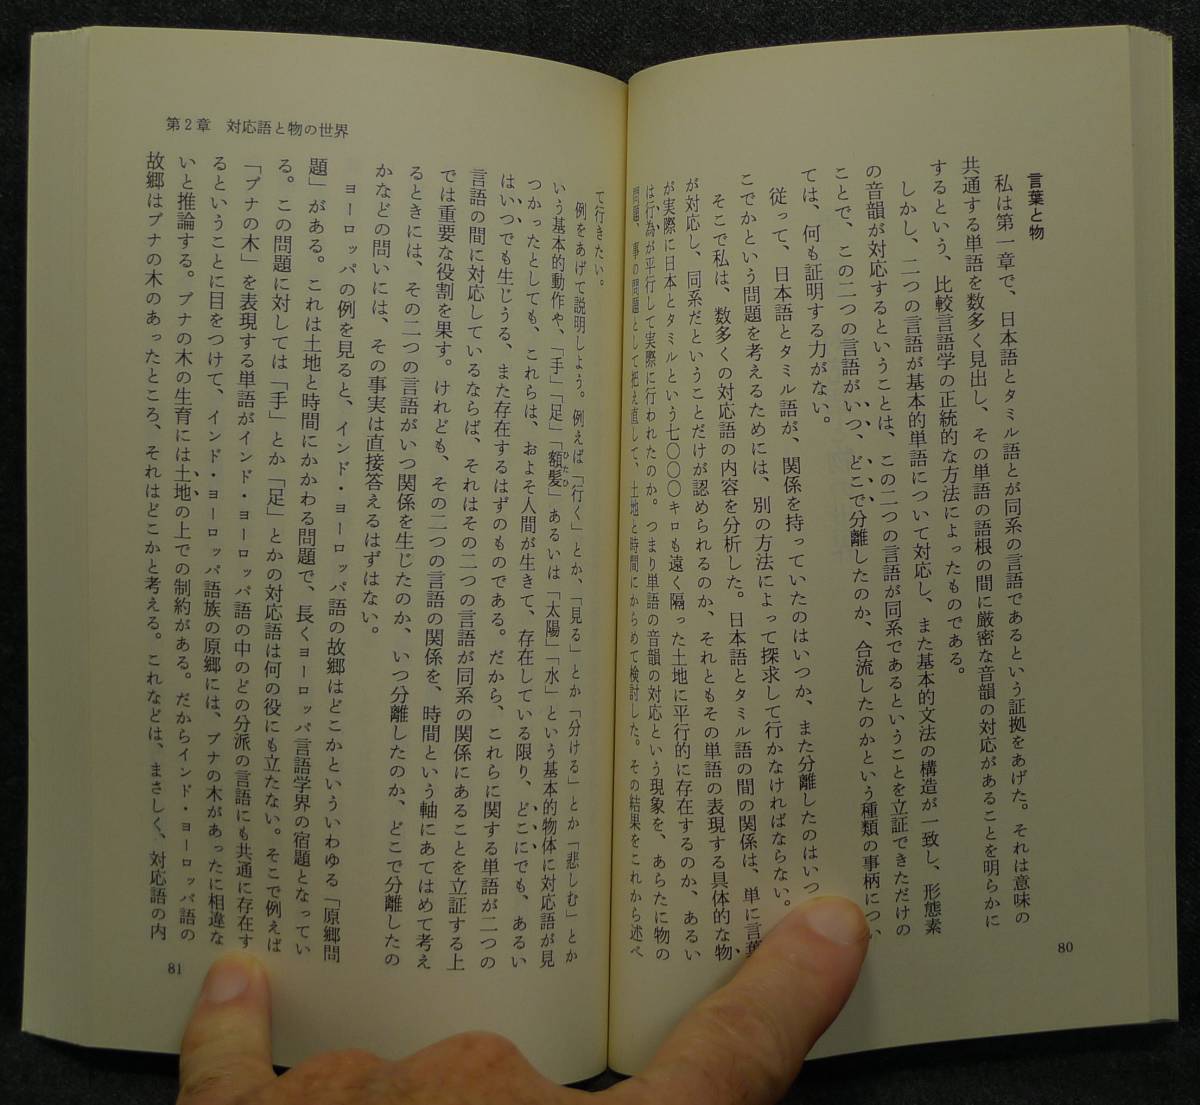 言葉と物
私は第一章で、日本語とタミル語とが同系の言語であるという証拠をあげた。それは意味の
共通する単語を数多く見出し、その単語の語根の間に厳密な音韻の対応があることを明らかに
するという、比較言語学の正統的な方法によったものである。
しかし、二つの言語が基本的単語について対応し、また基本的文法の構造が一致し、形態素
の音韻が対応するということは、この二つの言語が同系であるということを立証できただけの
ことで、この二つの言語がいつ、どこで分離したのか、合流したのかという種類の事柄につい
ては、何も証明する力がない。
従って、日本語とタミル語が、関係を持っていたのはいつか、また分離したのはいつ
こでかという問題を考えるためには、別の方法によって探求して行かなければならない。
そこで私は、数多くの対応語の内容を分析した。日本語とタミル語の間の関係は、単に言葉
が対応し、同系だということだけが認められるのか、それともその単語の表現する具体的な物
が実際に日本とタミルという七〇〇〇キロも遠く隔った土地に平行的に存在するのか、あるい
は行為が平行して実際に行われたのか。つまり単語の音韻の対応という現象を、あらたに物の
問題、事の問題として把え直して、土地と時間にからめて検討した。その結果をこれから述べ
80
第2章 対応語と物の世界
て行きたい。
例をあげて説明しよう。例えば「行く」とか、「見る」とか「分ける」とか「悲しむ」とか
いう基本的動作や、「手」「足」「額髪」あるいは「太陽」「水」という基本的物体に対応語が見
ひたひ
つかったとしても、これらは、およそ人間が生きて、存在している限り、どこにでも、あるい
はいつでも生じうる、また存在するはずのものである。だから、これらに関する単語が二つの
言語の間に対応しているならば、それはその二つの言語が同系の関係にあることを立証する上
では重要な役割を果す。けれども、その二つの言語の関係を、時間という軸にあてはめて考え
るときには、その二つの言語がいつ関係を生じたのか、いつ分離したのか、どこで分離したの
かなどの問いには、その事実は直接答えるはずはない。
ヨーロッパの例を見ると、インド・ヨーロッパ語の故郷はどこかといういわゆる「原郷問
題」がある。これは土地と時間にかかわる問題で、長くヨーロッパ言語学界の宿題となってい
る。この問題に対しては「手」とか「足」とかの対応語は何の役にも立たない。そこで例えば
「ブナの木」を表現する単語がインド・ヨーロッパ語の中のどの分派の言語にも共通に存在す
るということに目をつけて、インド・ヨーロッパ語族の原郷には、ブナの木があったに相違な
いと推論する。ブナの木の生育には土地の上での制約がある。だからインド・ヨーロッパ語の
故郷はブナの木のあったところ、それはどこかと考える。これなどは、まさしく、対応語の内
81